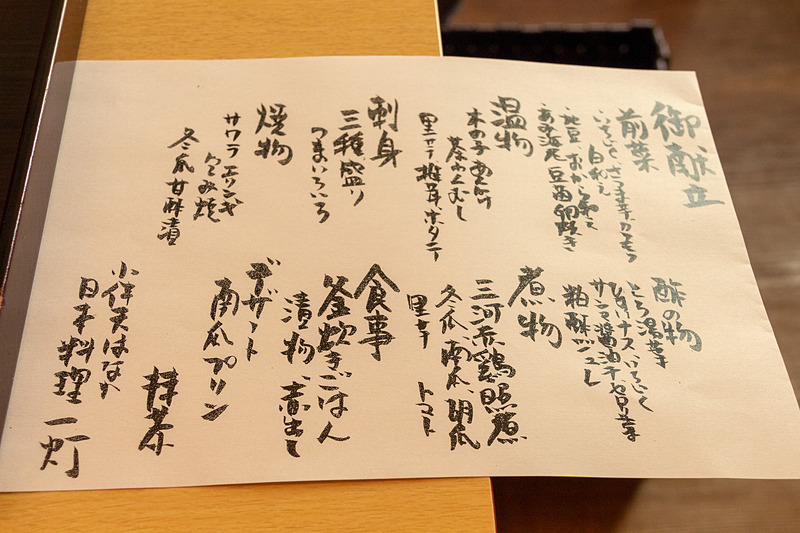 御献立
前菜
いちじく、さつま芋、カシューナッツ
白和え
枝豆、おから和え
あみ海老 豆苗 卵焼き
温物
木の子あんかけ
茶わんむし
里芋 椎茸 ホタテ
刺身
三種盛り
つまいろいろ
焼物
サワラ エリンギ
包み焼
冬瓜 甘酢漬
酢の物
とろ湯葉
ひすいナス、いちじく
サンマ醤油干、セロリ菜
粕酢ジュレ
煮物
三河赤鶏照煮
冬瓜、南瓜、胡瓜
里芋 トマト
食事
釜炊きごはん
漬物、赤出し
デザート
南瓜プリン
抹茶
小伴天はなれ
日本料理 一灯